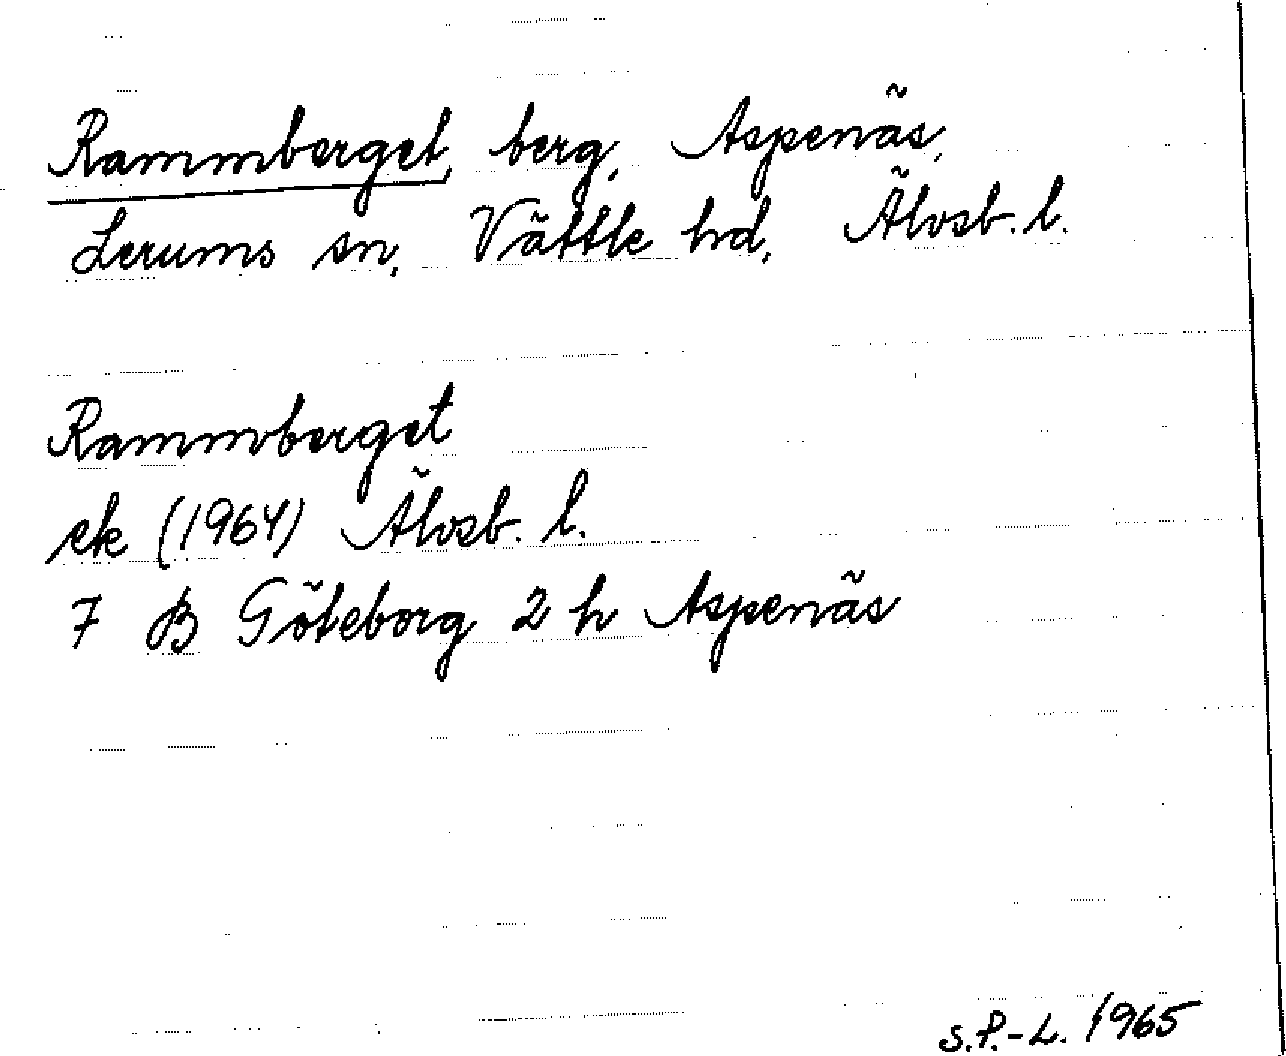 Rammberget, berg, Aspenäs,
Lerums sn, Vättle hd, Älvsb. l.
Rammberget
ek (1964) Älvsb. l.
7 B Göteborg 2 h Aspenäs
S.P.-L. 1965